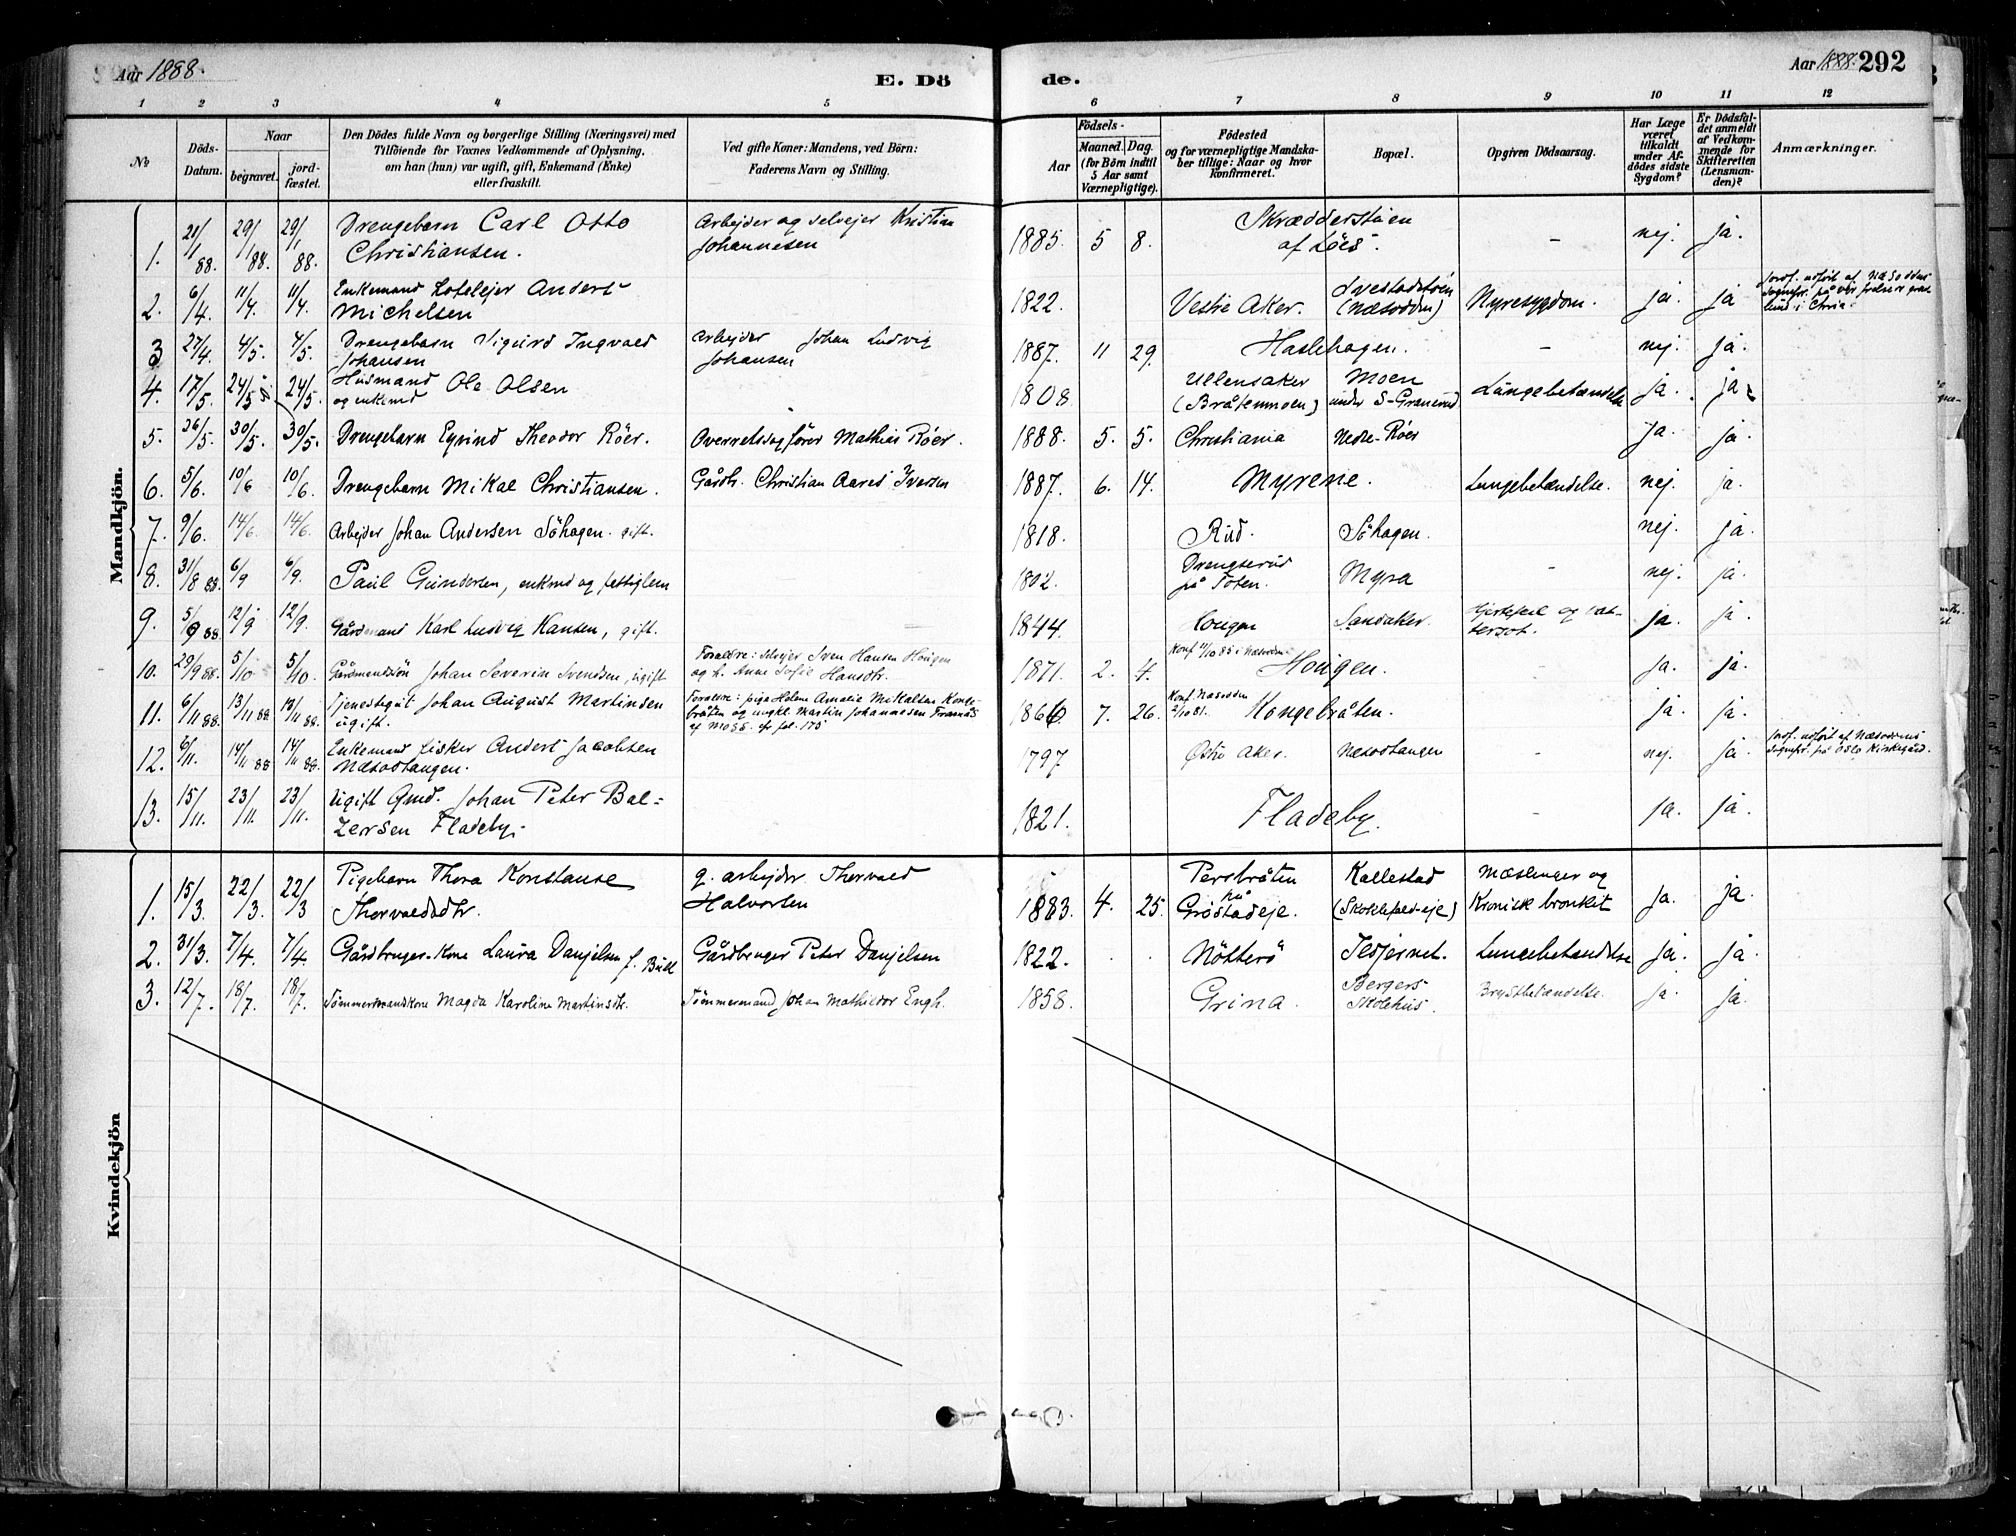 Aar 1888.
E. Dö
de.
Aar 1888. 292
1 2 3 4 5 6 7 8 9 10 11 12
No
Döds-
Datum.
Naar
begravet.
jord-
fæstet.
Den Dödes fulde Navn og borgerlige Stilling (Næringsvei) med
Tilföiende for Voxnes Vedkommende af Oplysning,
om han (hun) var ugift, gift, Enkemand (Enke)
eller fraskilt.
Ved gifte Koner: Mandens, ved Börn:
Faderens Navn og Stilling.
Födsels-
Aar
Maaned. Dag.
(for Börn indtil
5 Aar samt
Værnepligtige).
Födested
og for værnepligtige Mandska-
ber tillige: Naar og hvor
konfirmeret.
Bopæl.
Opgiven Dödsaarsag.
Har Læge
været
tilkaldt
under Af-
dödes sidste
Sygdom?
Er Dödsfal-
det anmeldt
af Vedkom-
mende for
Skifteretten
(Lensman-
den)?
Anmærkninger.
Mandkjön.
1. 21/1 88. 29/1 88. 29/1 88. Drengebarn Carl Otto
Christiansen.
Arbejder og selvejer Kristian
Johannesen
1885. 5 8. Skrædderstuen
af Löes. – nej. ja.
2. 6/4. 11/4. 11/4. Enkemand Anders
Michelsen
1822. Vestre Aker. (Næsodden) Nyresygdom. ja. ja
3 27/4. 4/5. 4/5. Drengebarn Sigurd Ingvald
Johansen
Arbejder Johan Ludvig
Johansen
1887. 11 29. Haslehagen. – nej. ja.
4. 17/5. 24/5 24/5. Husmand Ole Olsen
og enkemd
1808 Ullensaker
(Bråtenmoen) Moen
under S-Granerud. Lungebetændelse ja. ja
5. 26/5. 30/5. 30/5. Drengebarn Eyvind Theodor Röer. Overretssagförer Mathias Röer. 1888. 5. 5. Christiania Nedre-Röer ja. ja.
6. 5/6. 10/6 10/6. Drengebarn Mikal Christiansen. Gårdbr. Christian Aared Iversen 1887. 6. 14. Myrene. Lungebetændelse. nej. ja.
7. 9/6. 14/6. 14/6. Arbejder Johan Andersen Söhagen. gift. 1818. Rud. Söhagen. nej. ja.
8. 31/8 88. 6/9 6/9. Paul Gundersen, enkmd og fattiglem 1802. Drengserud
på Toten. Myra – nej. ja.
9. 5/9 88. 12/9 12/9. Gårdmand Karl Ludvig Hansen, gift. 1844. Hougen Sandaker. Hjertefeil og vat-
tersot. ja. ja.
10. 29/9 88. 5/10 5/10. Gårdmandssön Johan Severin Svendsen, ugift
Forældre: selvejer Sven Hansen Hougen
og h. Anne Sofie Hansdtr.
1871. 2. 4. Konf 11/10 85 i Næsodden
Hougen. ja. ja.
11. 6/11 88. 13/11 88 13/11 88. Tjenestegut Johan August Martinsen
ugift.
Forældre: pige Helene Amalie Mikalsen Konge-
bråten og ungkl. Martin Johannesen Framnæs
af Moss. cf fol. 175
1866 7. 26. Konf. Næsodden
2/10 81. Kongebråten. ja. ja.
12. 6/11. 14/11 88 14/11 88. Enkemand fisker Anders Jacobsen
Næsodtangen.
1797 Østre Aker. Næsodtangen – nej. ja. Jordf. udfört af Næsoddens
sognepr. på Oslo Kirkegård.
13. 15/11. 23/11. 23/11. Ugift Gmd. Johan Peter Bal-
zersen Fladeby.
1821. Fladeby. – ja. ja.
Kvindekjön
1. 15/3. 22/3. 22/3 Pigebarn Thora Konstanse
Thorvaldsdtr.
g. arbejder Thorvald
Halvorsen
1883. 4. 25. Persbråten
på
Gröstadeje. Kallestad
(Skoklefald-eje) Mæslinger og
Kronisk bronkit ja. ja.
2. 31/3. 7/4. 7/4 Gårdbruger-kone Laura Danjelsen f. Bull Gårdbruger Peter Danjelsen 1822. Nötterö Tedjernet. Lungebetændelse ja. ja.
3. 12/7. 18/7. 18/7. Tömmermandskone Magda Karoline Martinsdtr. Tömmermand Johan Mathildor Engh. 1858. Grina. Bergers
Skolehus. Brystbetændelse. ja. ja.